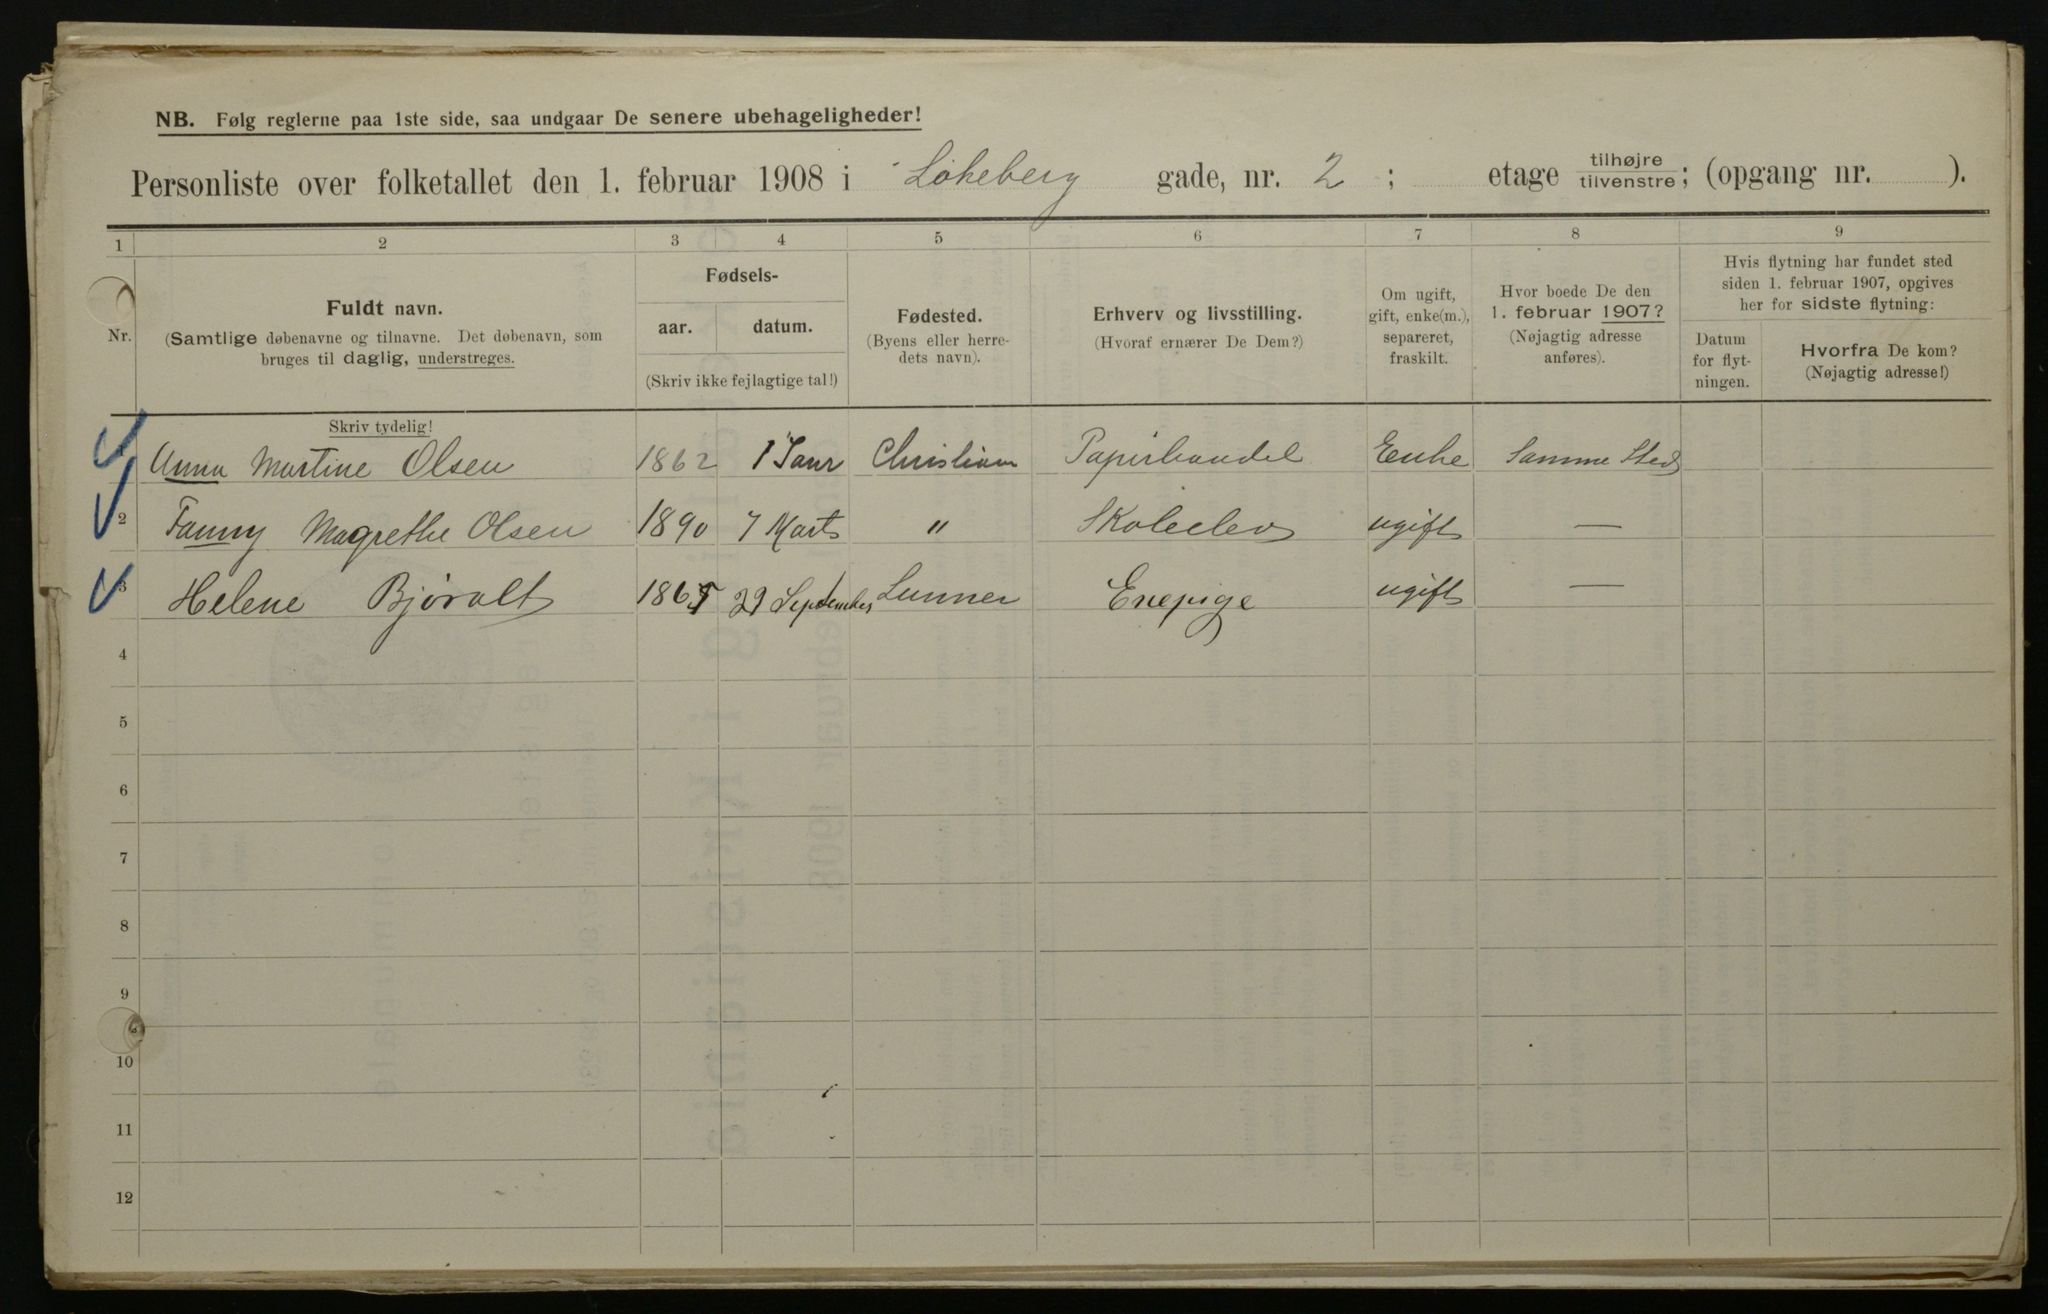 NB. Følg reglerne paa 1ste side, saa undgaar De senere ubehageligheder!
Personliste over folketallet den 1. februar 1908 i Løkeberg gade, nr. 2 ; etage tilhøjre/tilvenstre; (opgang nr. ).
1 2 3 4 5 6 7 8 9
Nr.
Fuldt navn.
(Samtlige døbenavne og tilnavne. Det døbenavn, som
bruges til daglig, understreges.
Skriv tydelig!
Fødsels-
aar. datum.
(Skriv ikke fejlagtige tal!)
Fødested.
(Byens eller herre-
dets navn).
Erhverv og livsstilling.
(Hvoraf ernærer De Dem?)
Om ugift,
gift, enke(m.),
separeret,
fraskilt.
Hvor boede De den
1. februar 1907?
(Nøjagtig adresse
anføres).
Hvis flytning har fundet sted
siden 1. februar 1907, opgives
her for sidste flytning:
Datum
for flyt-
ningen.
Hvorfra De kom?
(Nøjagtig adresse!)
Anna Martine Olsen 1862 1 Janr Christiania Papirhandel Enke Samme Sted
2 Fanny Magrethe Olsen 1890 7 Marts " Skoleelev ugift —
3 Helene Bjøralt 1865 29 September Lunner Enepige ugift —
4
5
6
7
8
9
10
11
12